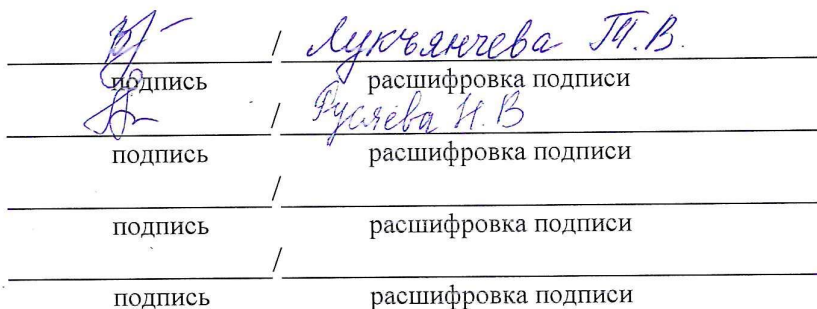 / Лукъянчева Т.В.
подпись расшифровка подписи
/ Русяева Н.В
подпись расшифровка подписи
/
подпись расшифровка подписи
/
подпись расшифровка подписи